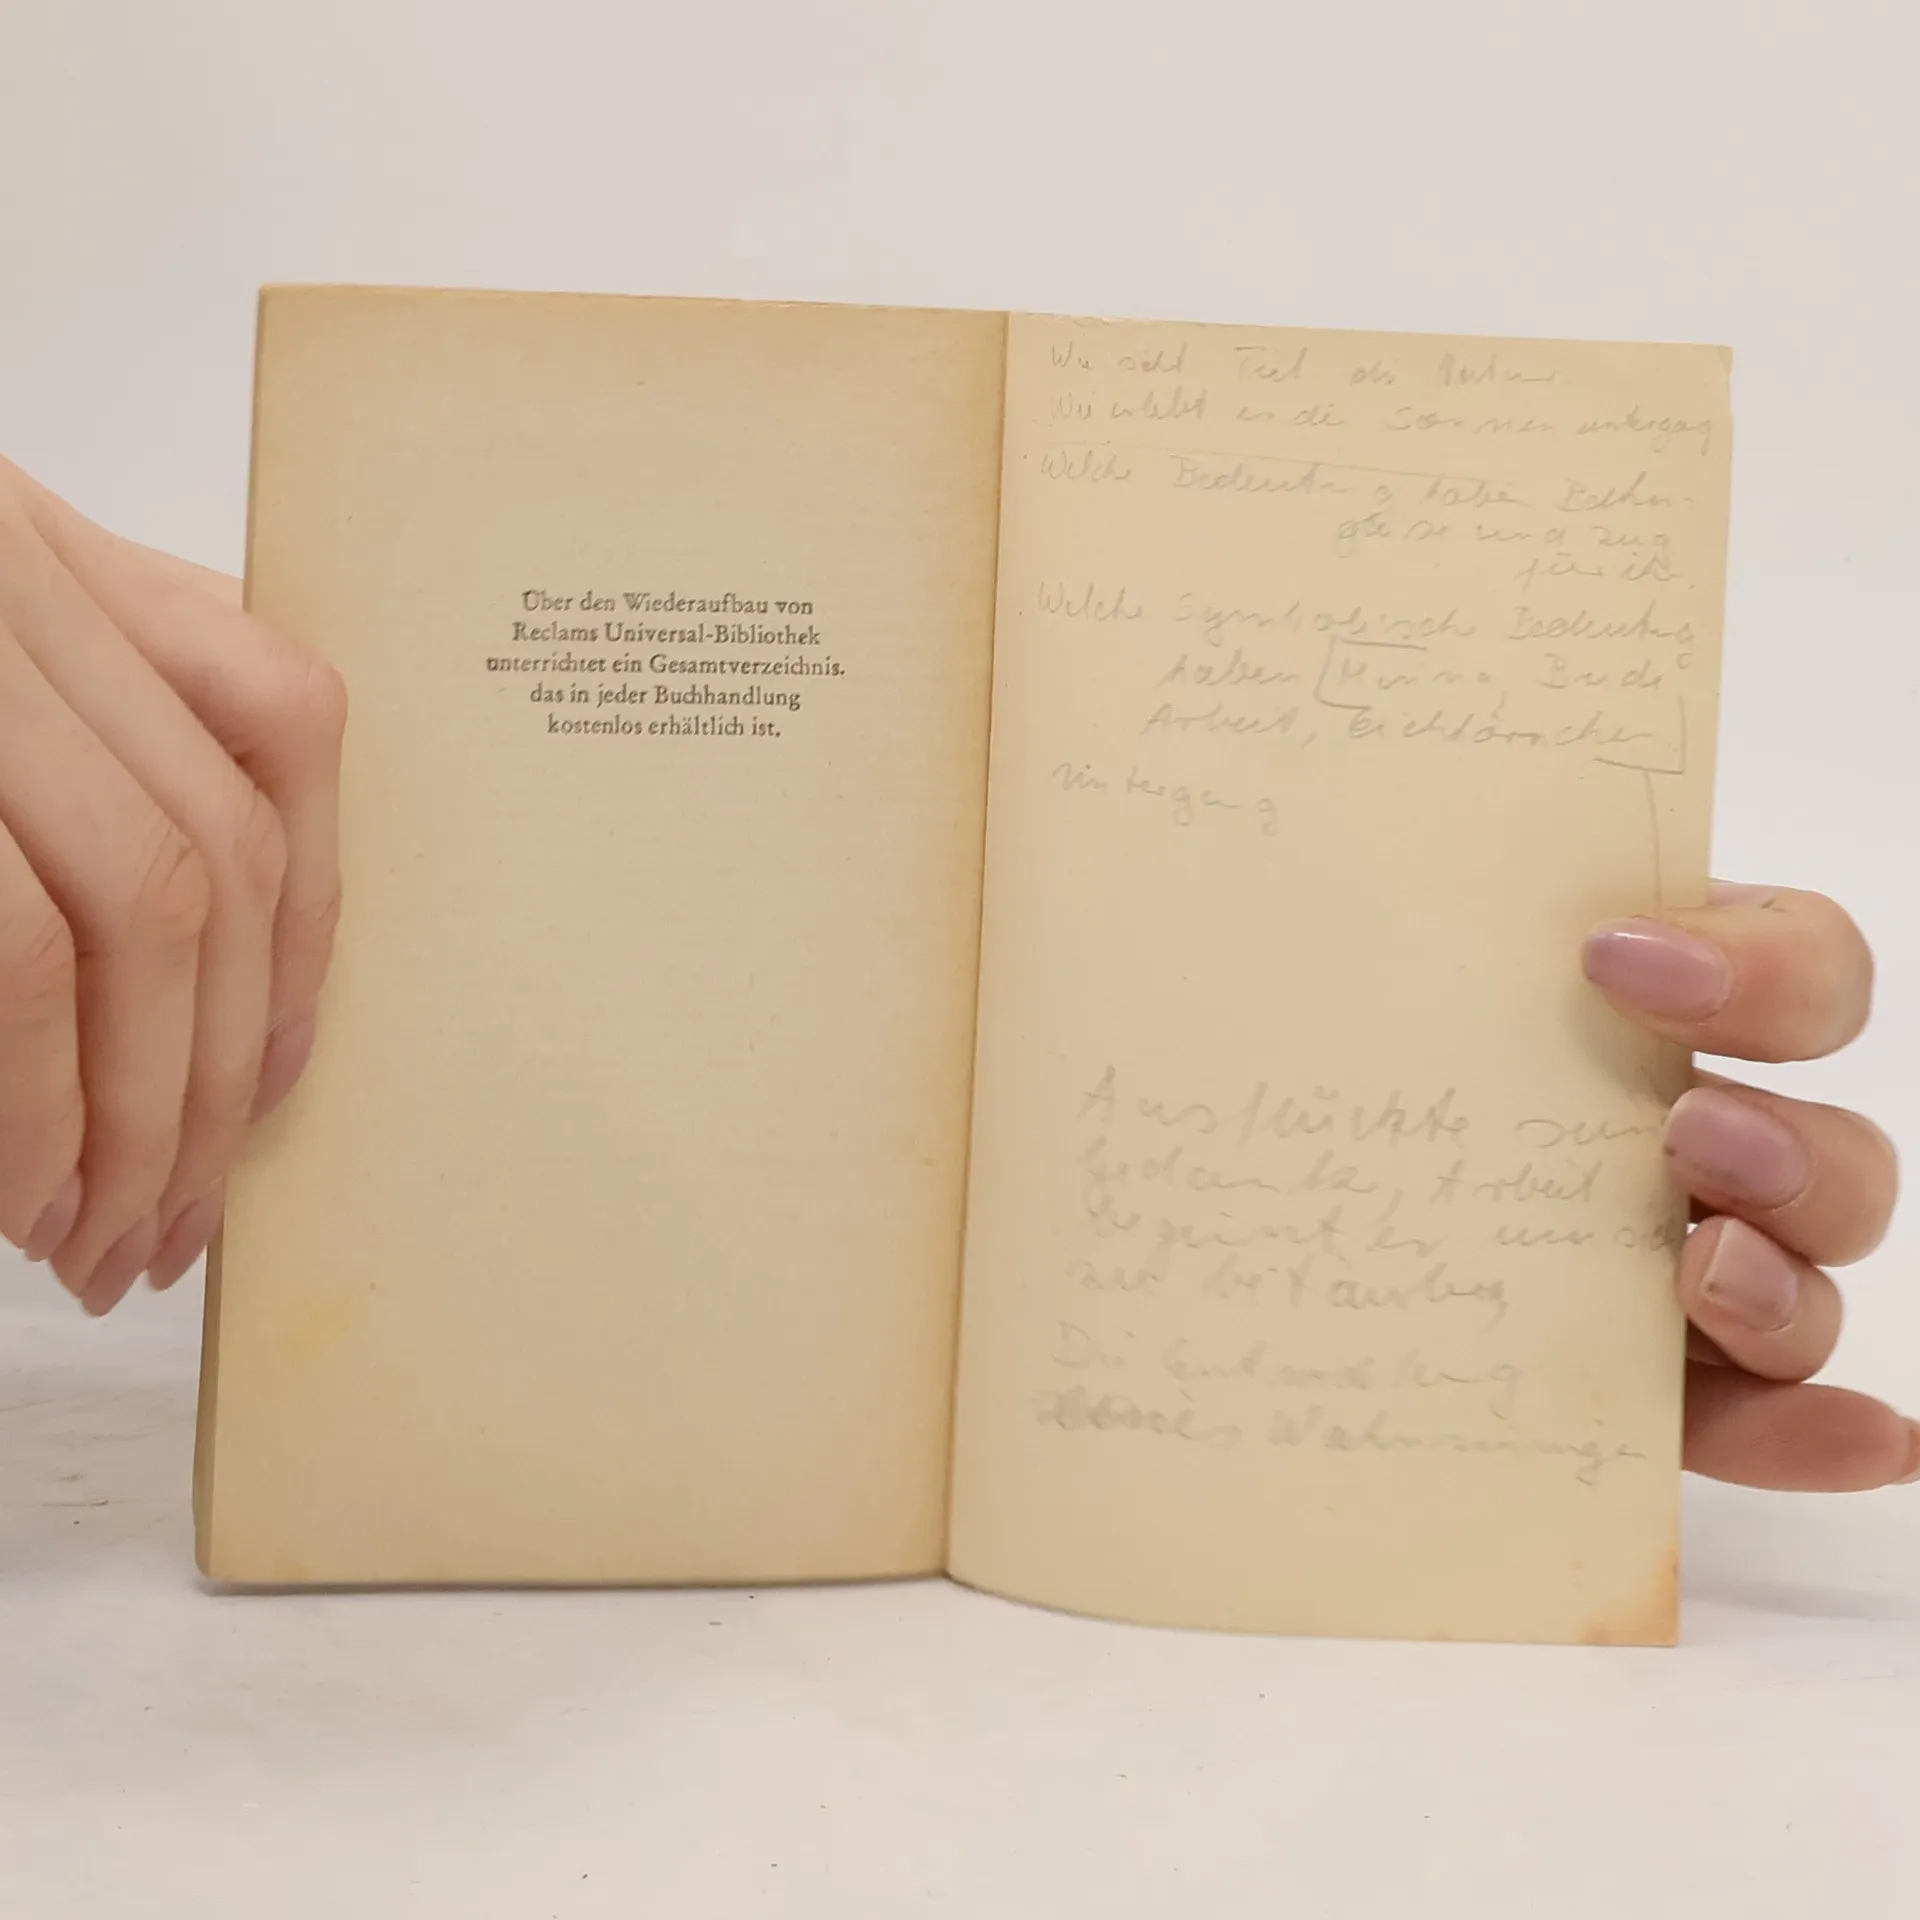 Über den Wiederaufbau von
Reclams Universal-Bibliothek
unterrichtet ein Gesamtverzeichnis.
das in jeder Buchhandlung
kostenlos erhältlich ist.
Wie sieht Tiel die Natur
Wie erlebt er die Sonnen untergag
Welche Bedeutung haben Bahn-
gleise und Zug
für ihn.
Welche Symbolische Bedeutung
haben Minna, Bude
Arbeit, Eichhörnchen
Untergang
Ausflückte sein
Gedanke, Arbeit
beginnt er um sich
zu
Die Entwicklung
eines Wahnsinnige